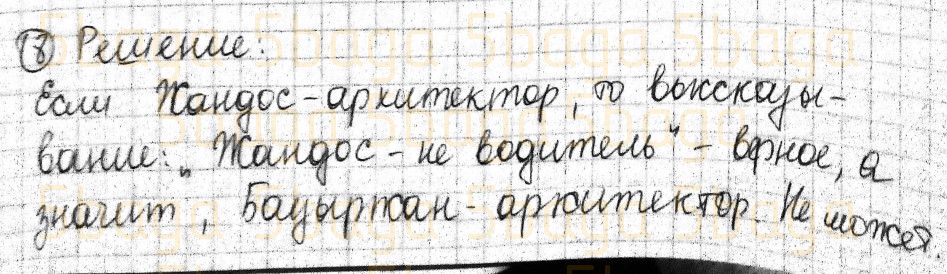 ⑱ Решение:
Если Жандос - архитектор, то выксказы-
вание: „Жандос - не водитель" - верное, а
значит, Бауыржан - архитектор. Не может.